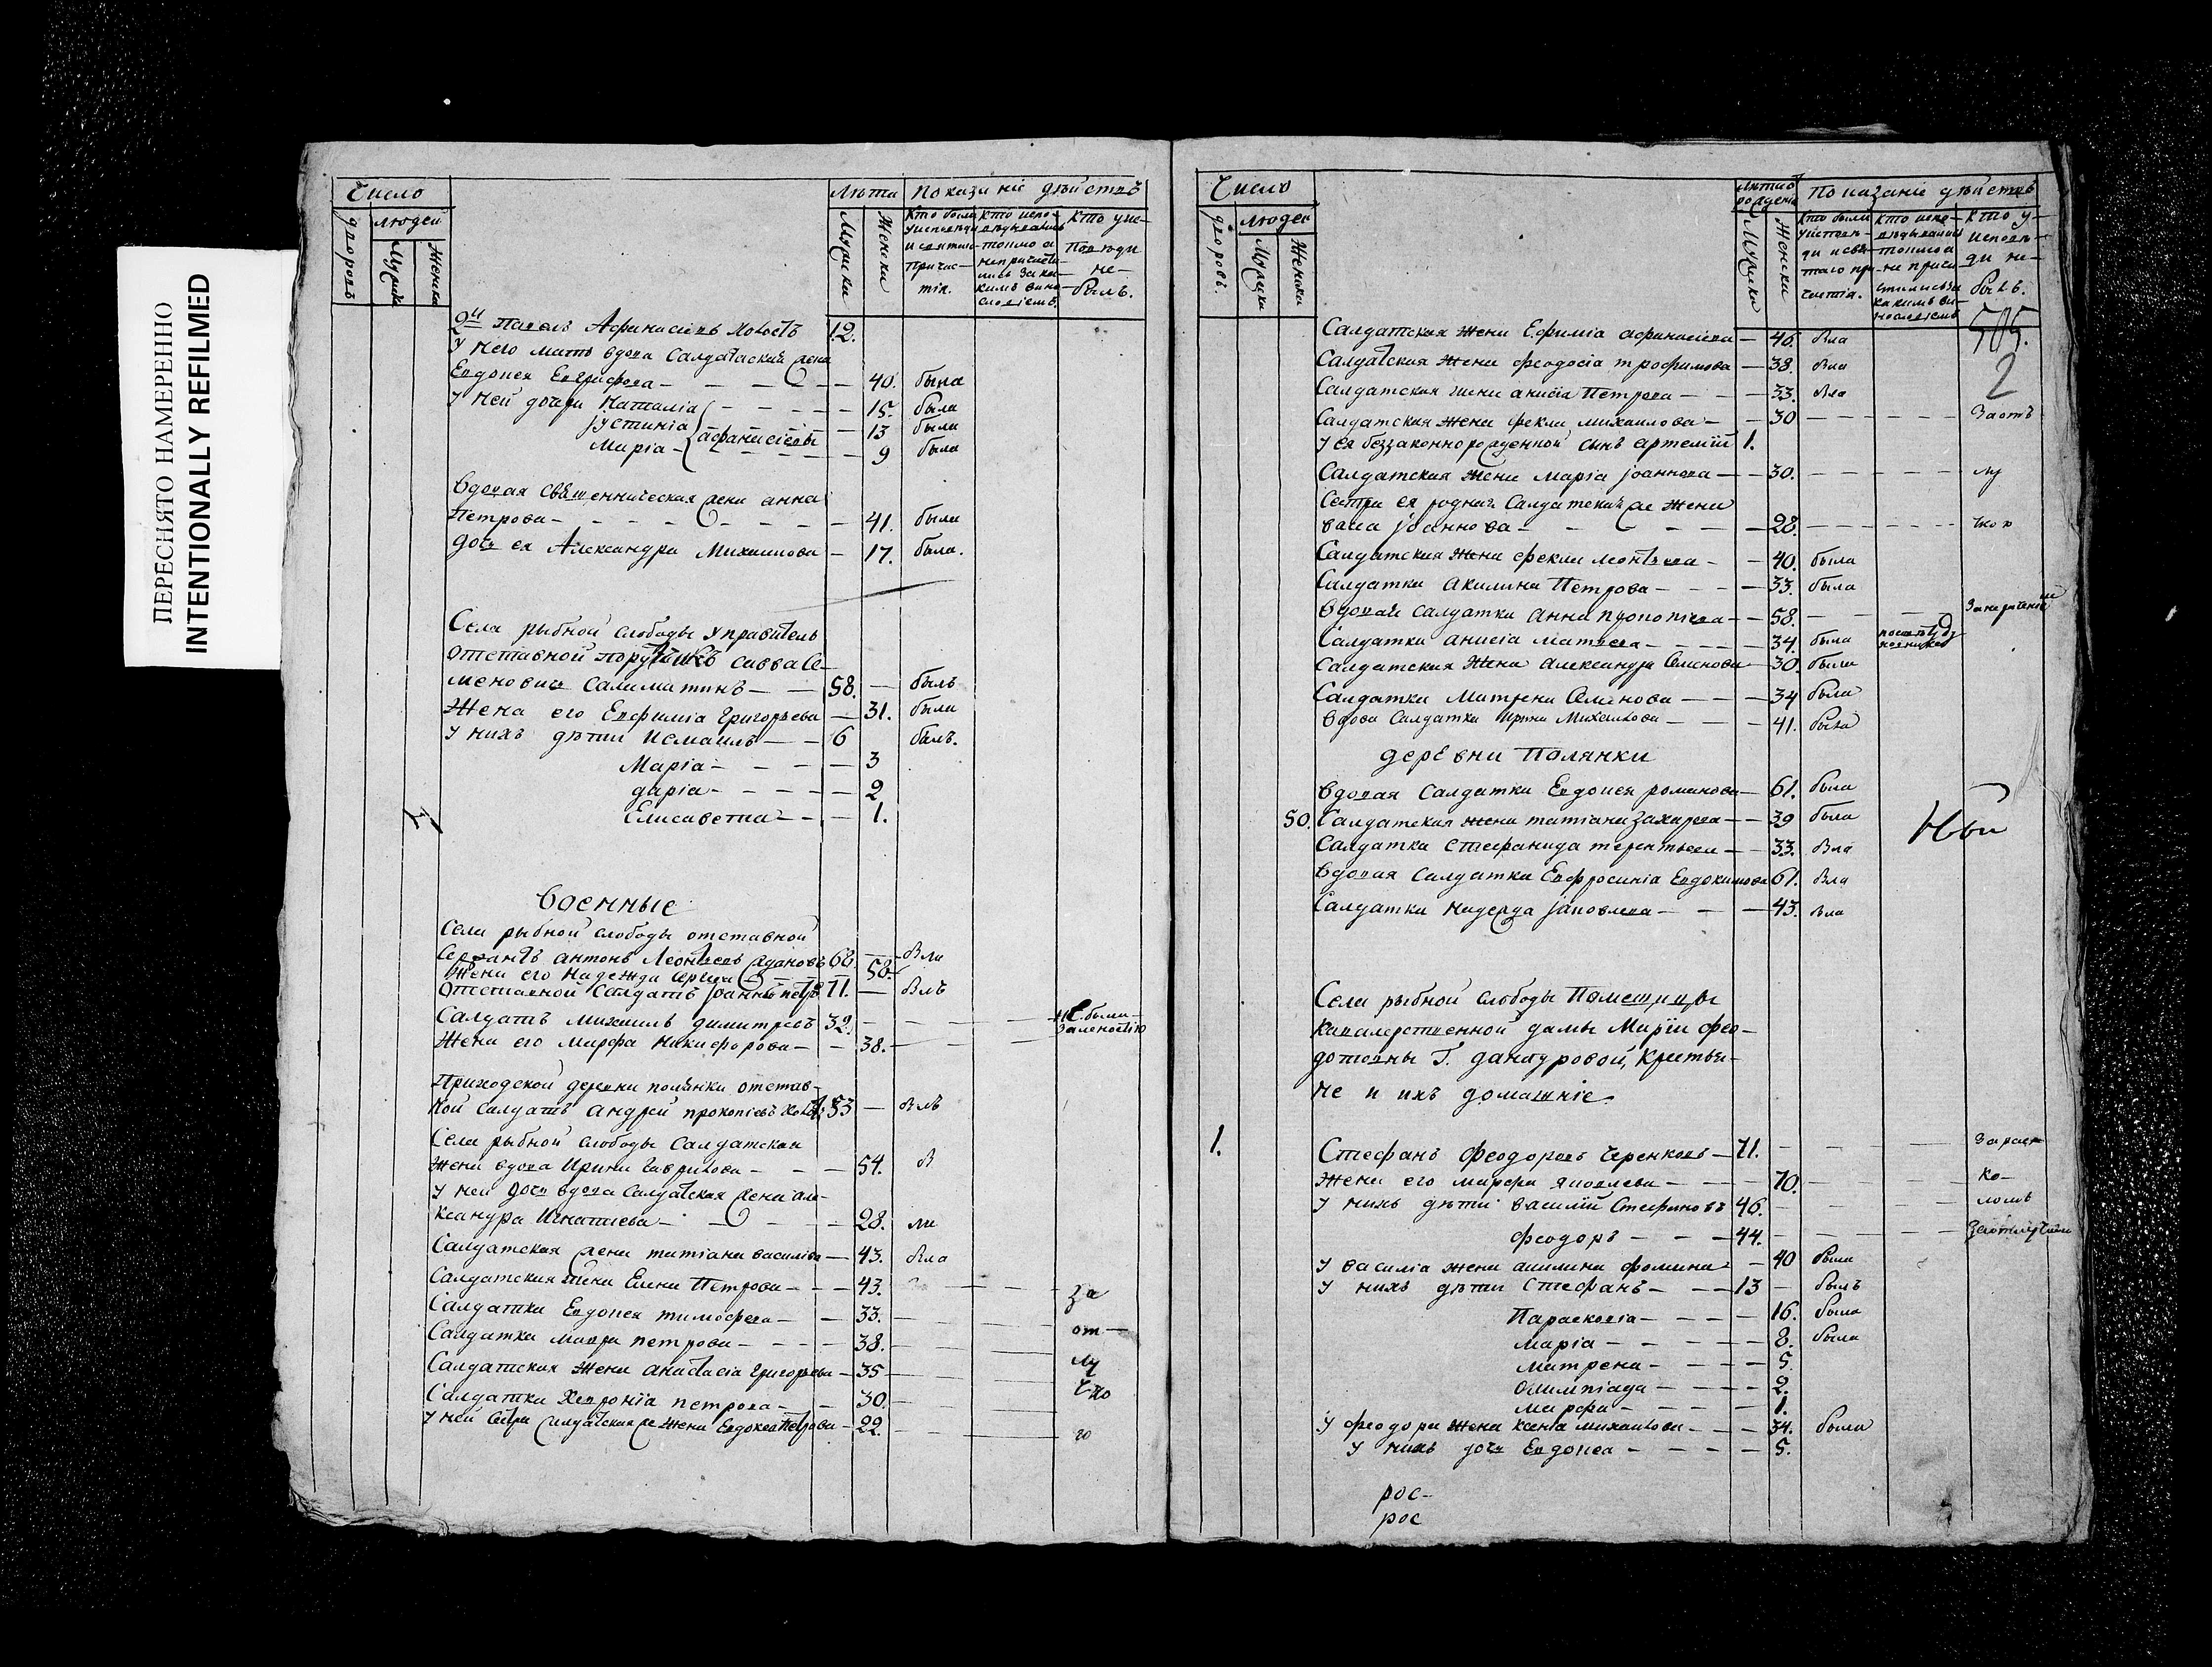 ПЕРЕСНЯТО НАМЕРЕННО
INTENTIONALLY REFILMED
Число
Лѣта Показаніе дѣйствъ
дворовъ людей
Мужска Женска
Мужски Женски
Кто были у исповѣди и святаго причастія.
Кто исповѣдывались токмо а не причастились за какимъ винословіемъ.
Кто у исповѣди не былъ.
2й Павелъ Афанасіевъ холостъ 12.
У него мать вдова Салдатская жена
Евдокея Евграфова — 40. была
У ней дочери Наталіа — 15. была
Јустиніа — 13 были
Маріа — афанасіевы 9 была
Вдовая священническая жена анна
Петрова — 41. была
дочь ея Александра Михаилова — 17. была.
Села рыбной слободы управитель
отставной порутчикъ савва Се-
меновичь Салиматинъ — 58. — былъ
Жена его Евфиміа Григорьева — 31. была
У нихъ дѣти Исмаилъ — 6 былъ.
Маріа — 3
даріа — 2
Елисавета — 1.
Военные
Села рыбной слободы отставной
Сержантъ антонъ Леонтьевъ 68.
Жена его Надежда 58.
Отставной Салдатъ јоаннъ петровъ 71. — Влъ
Салдатъ Михаилъ димитріевъ 32. — не были
Жена его Марфа Никифорова — 38.
Приходской деревни полянки отстав-
ной салдатъ андрей прокопіевъ холостъ 53 — Влъ
Села рыбной слободы Салдатская
жена вдова Ирина Гаврилова — 54. В
У ней дочь вдова Салдатская жена але-
ксандра Игнатиева — 28. ла
Салдатская жена татіана василіева — 43. Вла
Салдатская жена Елена Петрова — 43. — за
Салдатка Евдокея тимофеева — 33.
Салдатка мавра петрова — 38. — от-
Салдатская жена анастасіа Григорьева — 35 — лу
Салдатка Хевроніа петрова — 30. — чко
У ней сестра Салдатская же жена Евдокеа Петрова — 22. — ю
Число
Лѣта рожденія Показаніе дѣйствъ
дворовъ. людей
Мужска Женска
Мужски Женски
Кто были у исповѣди и святаго причастія.
Кто исповѣдывались токмо а не причастились за какимъ винословіемъ
Кто у исповѣди не былъ.
505.
2
Салдатская жена Ефиміа афанасіева — 46. Вла
Салдатская жена феодосіа трофимова — 38. Вла
Салдатская жена анисіа Петрова — 33. Вла
Салдатская жена фекла михаилова — 30 — За отъ
У ея беззаконнорожденной сынъ артемій 1.
Салдатская жена Маріа јоаннова — 30. — лу
Сестра ея родная Салдатская же жена
васа јоаннова — 28. — чкою
Салдатская жена фекла леонтьева — 40. была
Салдатка акилина Петрова — 33. была
Вдовая салдатка анна прокопіева — 58.
Салдатка анисіа матвеева — 34. была
Салдатская жена александра Семенова 30. была
Салдатка Матрена Семенова — 34 была
Вдова Салдатка Ирина Михаилова — 41. была
деревни Полянки
Вдовая Салдатка Евдокея романова — 61. была
50. Салдатская жена татіана захарова — 39 была
Салдатка Стефанида терентьева — 33. Вла
Вдовая салдатка Евфросиніа Евдокимова 61. Вла
Салдатка надежда јаковлева — 43. Вла
Села рыбной слободы Помещицы
Кавалерственной дамы Маріи Фео-
дотовны Г. данауровой, крестья-
не и ихъ домашніе.
1.
Стефанъ Феодоровъ Черенковъ — 71.
Жена его марфа яковлева — 70.
У нихъ дѣти василій Стефановъ 46.
Феодоръ — 44.
У василіа жена акилина фомина — 40 была
У нихъ дѣти Стефанъ — 13 — былъ
Параскевіа — 16. была
Маріа — 8. была
Матрена — 5.
Олимпіада — 2.
Марфа — 1.
У феодора жена ксеніа михаилова — 34. была
У нихъ дочь Евдокеа — 5.
рос-
рос